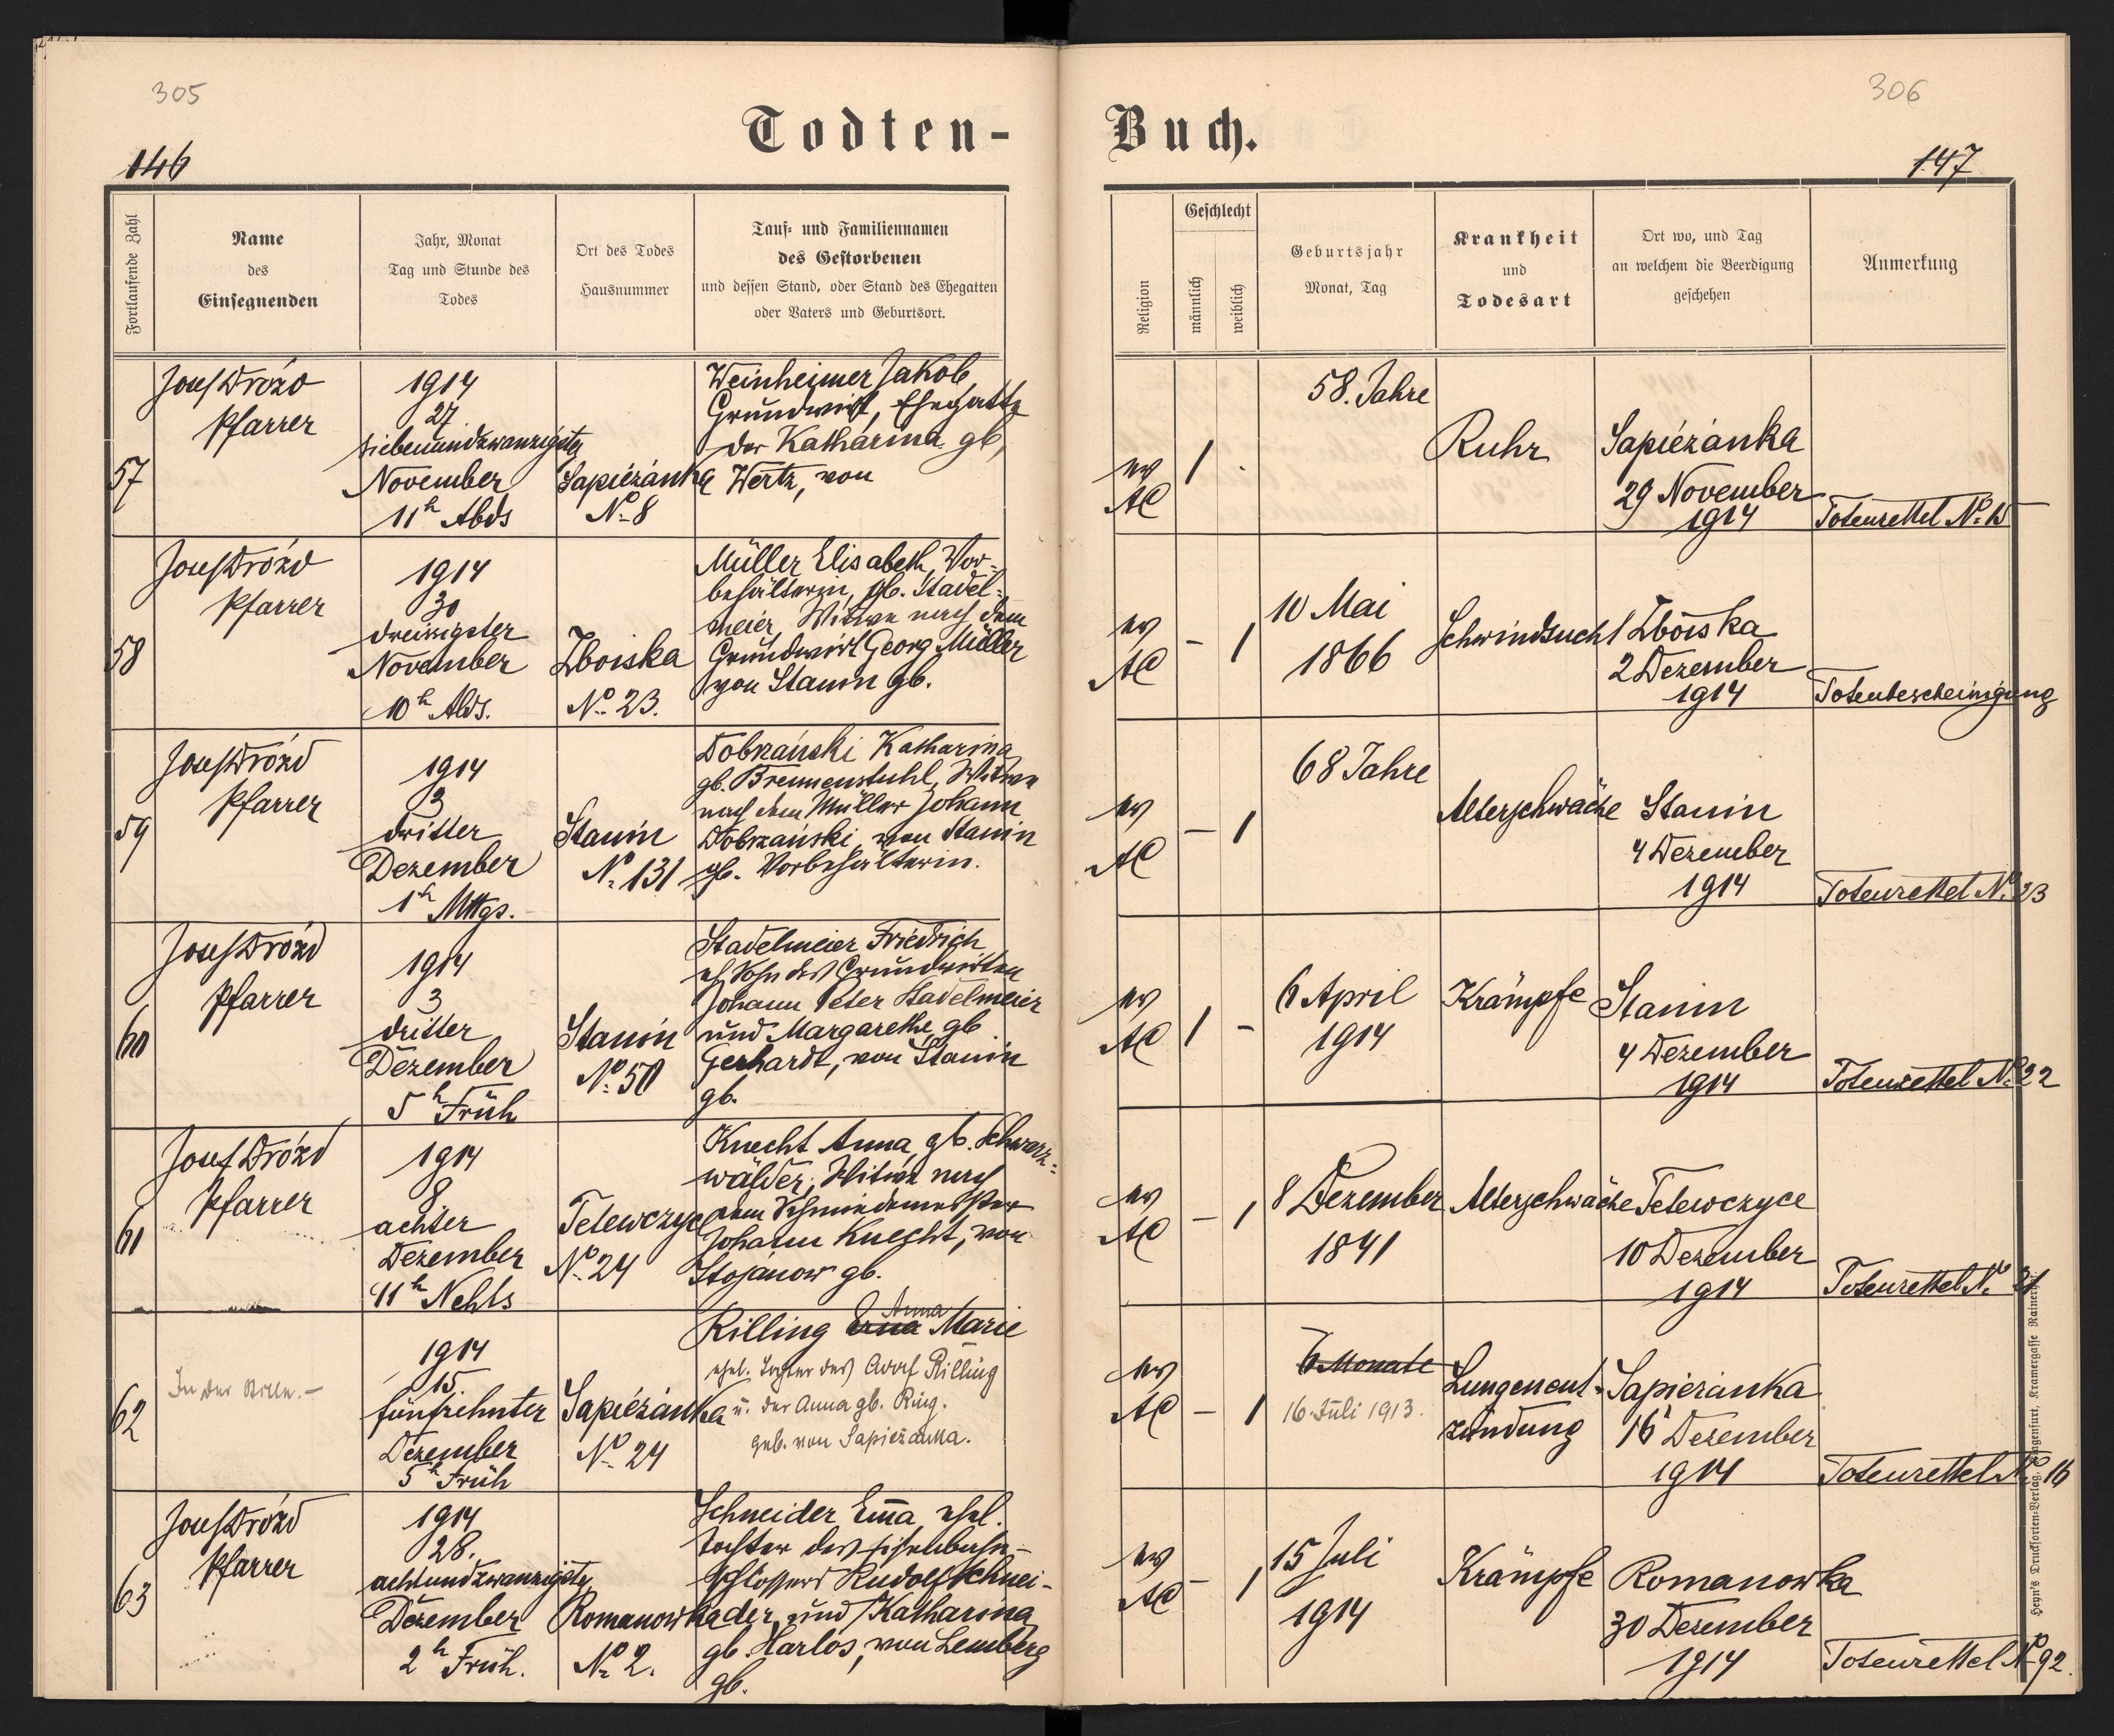 305
306
Todten-
Buch.
146
147
Fortlaufende Zahl
Name
des
Einsegnenden
Jahr, Monat
Tag und Stunde des
Todes
Ort des Todes
Hausnummer
Tauf- und Familiennamen
des Gestorbenen
und dessen Stand, oder Stand des Ehegatten
oder Vaters und Geburtsort.
Religion
Geschlecht
männlich
weiblich
Geburtsjahr
Monat, Tag
Krankheit
und
Todesart
Ort wo, und Tag
an welchem die Beerdigung
geschehen
Anmerkung
57
Josef Drózd
Pfarrer
1914
27
siebenundzwanzigster
November
11h Abds
Sapiéżánka
No 8
Weinheimer Jakob,
Grundwirt, Ehegatte
der Katharina gb,
Wertz, von
ev
AC
1
58. Jahre
Ruhr
Sapiéżánka
29 November
1914
Totenzettel No 15
58
Josef Drózd
Pfarrer
1914
30
dreissigster
November
10h Abds.
Zboiska
No 23.
Müller Elisabeth, Vor-
behälterin, gb. Stadel-
meier Witwe nach dem
Grundwirt Georg Müller
von Stanin gb.
ev
AC
- 1
10 Mai
1866
Schwindsucht
Zboiska
2 Dezember
1914
Totenbescheinigung
59
Josef Drózd
Pfarrer
1914
3
dritter
Dezember
1h Mttgs.
Stanin
No 131
Dobrzański Katharina
gb. Brennenstuhl, Witwe
nach dem Müller Johann
Dobrzański, von Stanin
gb. Vorbehälterin.
ev
AC
- 1
68 Jahre
Alterschwäche
Stanin
4 Dezember
1914
Totenzettel No 23
60
Josef Drózd
Pfarrer
1914
3
dritter
Dezember
5h Früh
Stanin
No 50
Stadelmeier Friedrich
eh. Sohn des Grundwirten
Johann Peter Stadelmeier
und Margarethe gb
Gerhardt, von Stanin
gb.
ev
AC
1 -
6 April
1914
Krämpfe
Stanin
4 Dezember
1914
Totenzettel No 22
61
Josef Drózd
Pfarrer
1914
8
achter
Dezember
11h Nchts
Tetewczyce
No 24
Knecht Anna, gb. Schwarz-
wälder, Witwe nach
dem Schmiedemeister
Johann Knecht, von
Stojanow gb.
ev
AC
- 1
8 Dezember
1841
Alterschwäche
Tetewczyce
10 Dezember
1914
Totenzettel No 21
62
In der Stille.-
1914
15
fünfzehnter
Dezember
5h Früh
Sapiéżánka
No 24
Anna
Rilling Erna Marie
ehel. Tochter des Adolf Rilling
u. der Anna gb. Ring.
geb. von Sapieżanka.
ev
AC
- 1
6 Monate
16. Juli 1913.
Lungenent-
zündung
Sapieżánka
16 Dezember
1914
Totenzettel No 16
63
Josef Drózd
Pfarrer
1914
28.
achtundzwanzigster
Dezember
2h Früh.
Romanowka
No 2.
Schneider Em̄a, ehel.
Tochter des Eisenbahn-
schlossers Rudolf Schnei-
der und Katharina
gb. Harlos, von Lemberg
gb.
ev
AC
- 1
15 Juli
1914
Krämpfe
Romanowka
30 Dezember
1914
Totenzettel No 92.
Heyn's Drucksorten-Verlag, Klagenfurt, Kramergasse